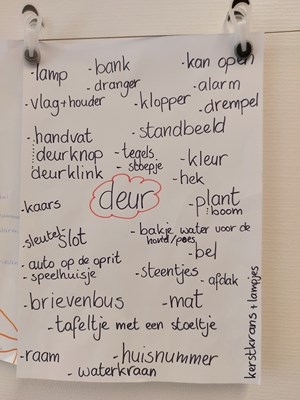 -lamp
-bank
-kan open
-dranger
-alarm
-vlag+houder
-klopper
-drempel
-handvat
-standbeeld
deurknop
-tegels
-stoepje
-kleur
deurklink
-hek
deur
-plant
boom
-kaars
-sleutel-slot
-bakje water voor de
hond/poes
-bel
-auto op de oprit
-speelhuisje
-steentjes
-afdak
-brievenbus
-mat
-tafeltje met een stoeltje
-raam
-huisnummer
-waterkraan
kerstkrans + lampjes